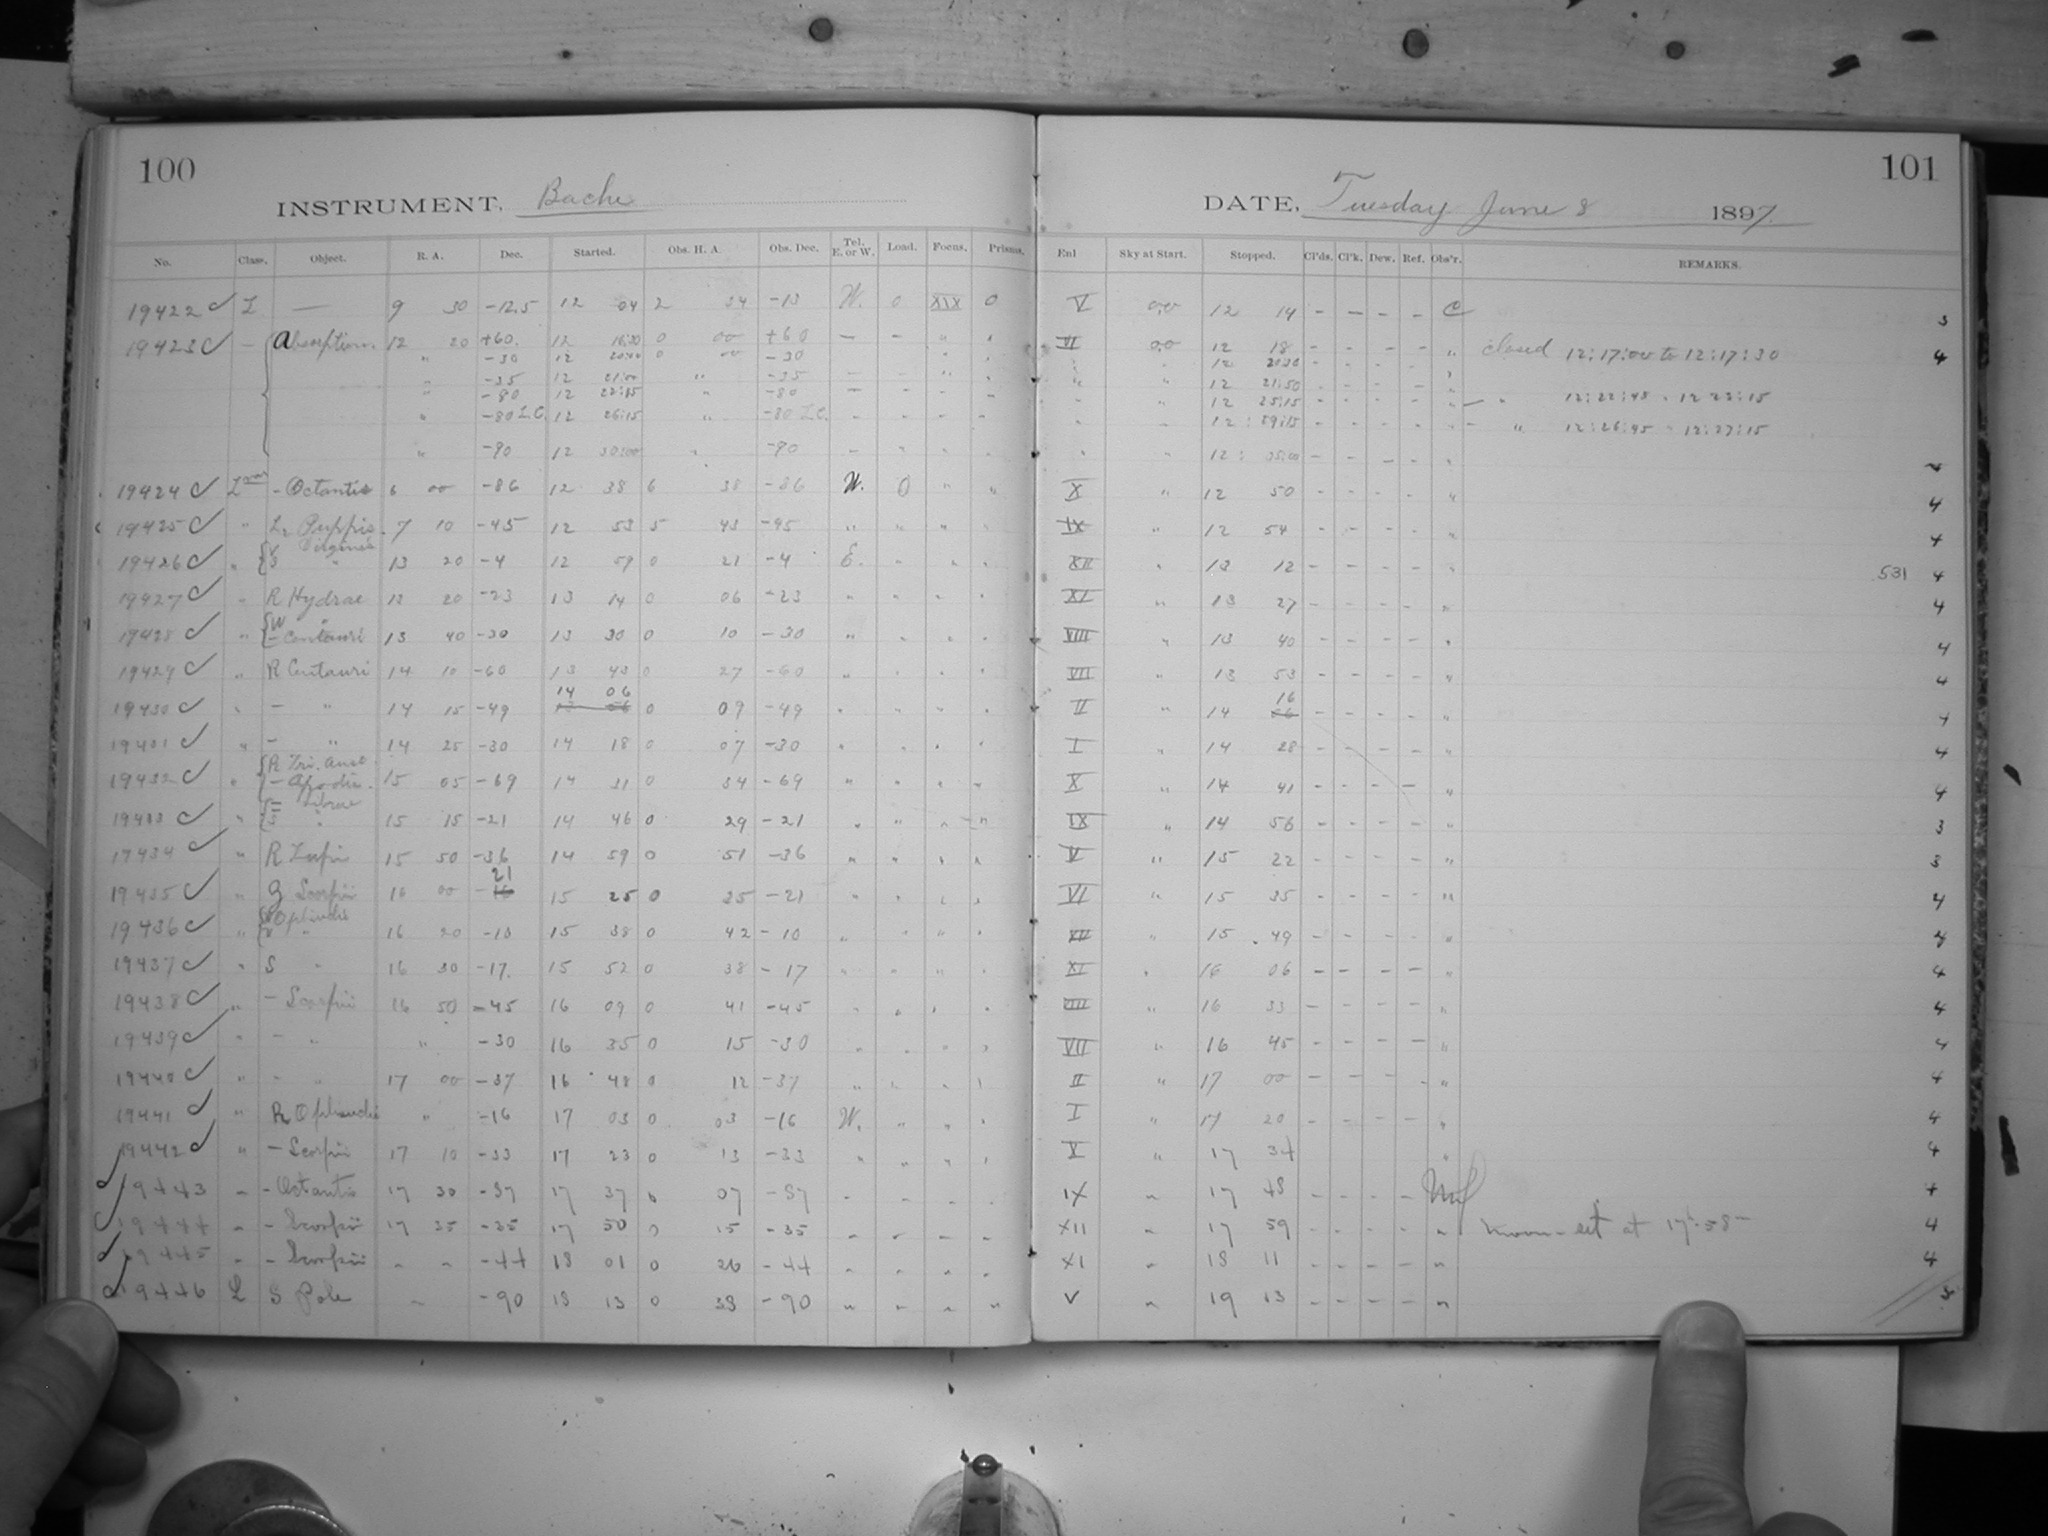 100
101
INSTRUMENT, Bache
DATE, Tuesday June 8 1897.
No. Class. Object. R. A. Dec. Started. Obs. H. A. Obs. Dec. Tel. E. or W. Load. Focus. Prisms. Enl Sky at Start. Stopped. Cl'ds. Cl'k. Dew. Ref. Obs'r. REMARKS.
19422 L — 9 30 -12.5 12 04 2 34 -13 W. 0 XIX 0 V 00 12 14 - - - - C 3
19423 - Absorption. 12 20 +60. 12 16:30 0 00 +60 - - " " VI 00 12 18 - - - - " closed 12:17:00 to 12:17:30 4
" -30 12 20:00 0 00 -30 12 20:30 - - - -
" -35 12 21:00 " -35 - - " " 12 21:50 - - - -
" -80 12 22:15 " -80 - - " 12 25:15 - - - - " 12:22:45 - 12 23:15
" -80 L.C. 12 26:15 " -80 L.C. - - - - 12 : 29:15 - - - - " 12:26:45 - 12:27:15
" -90 12 30:00 " -90 - 12 : 35:00 - - - -
19424 - Octantis 6 00 -86 12 38 6 38 -86 W. 0 " " X " 12 50 - - - - " 4
19425 " L2 Puppis. 7 10 -45 12 53 5 43 -45 " " " " IX 12 54 - - - - " 4
Virginis
19426 " S " 13 20 -4 12 59 0 21 -4 E. " " " XII " 13 12 - - - - " 531 4
19427 " R Hydrae 13 20 -23 13 14 0 06 -23 " " " " XI " 13 27 - - - - " 4
W "
19428 " - Centauri 13 40 -30 13 30 0 10 -30 " " " " VIII " 13 40 - - - - " 4
19429 " R Centauri 14 10 -60 13 43 0 27 -60 " " " " VII " 13 53 - - - - " 4
14 06 16
19430 " - " 14 15 -49 0 09 -49 " " " " II " 14 - - - - " 4
19431 " - " 14 25 -30 14 18 0 07 -30 " " " " I " 14 28 - - - - " 4
R Tri. Aust.
19432 " - Apodis. 15 05 -69 14 31 0 34 -69 " " " " X " 14 41 - - - - " 4
- Librae
19433 " S " 15 15 -21 14 46 0 29 -21 " " " " IX " 14 56 - - - - " 3
19434 " R Lupi 15 50 -36 14 59 0 51 -36 " " " " V " 15 22 - - - - " 3
21
19435 " Scorpii 16 00 - 15 25 0 35 -21 " " " " VI " 15 35 - - - - " 4
Ophiuchi
19436 " " 16 20 -10 15 38 0 42 -10 " " " " XII " 15 49 - - - - " 4
19437 " S " 16 30 -17. 15 52 0 38 -17 " " " " XI " 16 06 - - - - " 4
19438 " - Scorpii 16 50 -45 16 09 0 41 -45 " " " " VIII " 16 33 - - - - " 4
19439 " - " " -30 16 35 0 15 -30 " " " " VII " 16 45 - - - - " 4
19440 " - " 17 00 -37 16 48 0 12 -37 " " " " II " 17 00 - - - - " 4
19441 " R Ophiuchi " -16 17 03 0 03 -16 W. " " " I " 17 20 - - - - " 4
19442 " - Scorpii 17 10 -33 17 23 0 13 -33 " " " " V " 17 34 " 4
19443 " - Octantis 17 30 -87 17 37 0 07 -87 " " " " IX " 17 48 - - - - 4
19444 " - Scorpii 17 35 -35 17 50 0 15 -35 " " " " XII " 17 59 - - - - " Moon - set at 17h 58m 4
19445 " - Scorpii " " -44 18 01 0 26 -44 " " " " XI " 18 11 - - - - " 4
19446 L S Pole " -90 18 13 0 38 -90 " " " " V " 19 13 - - - - " 3